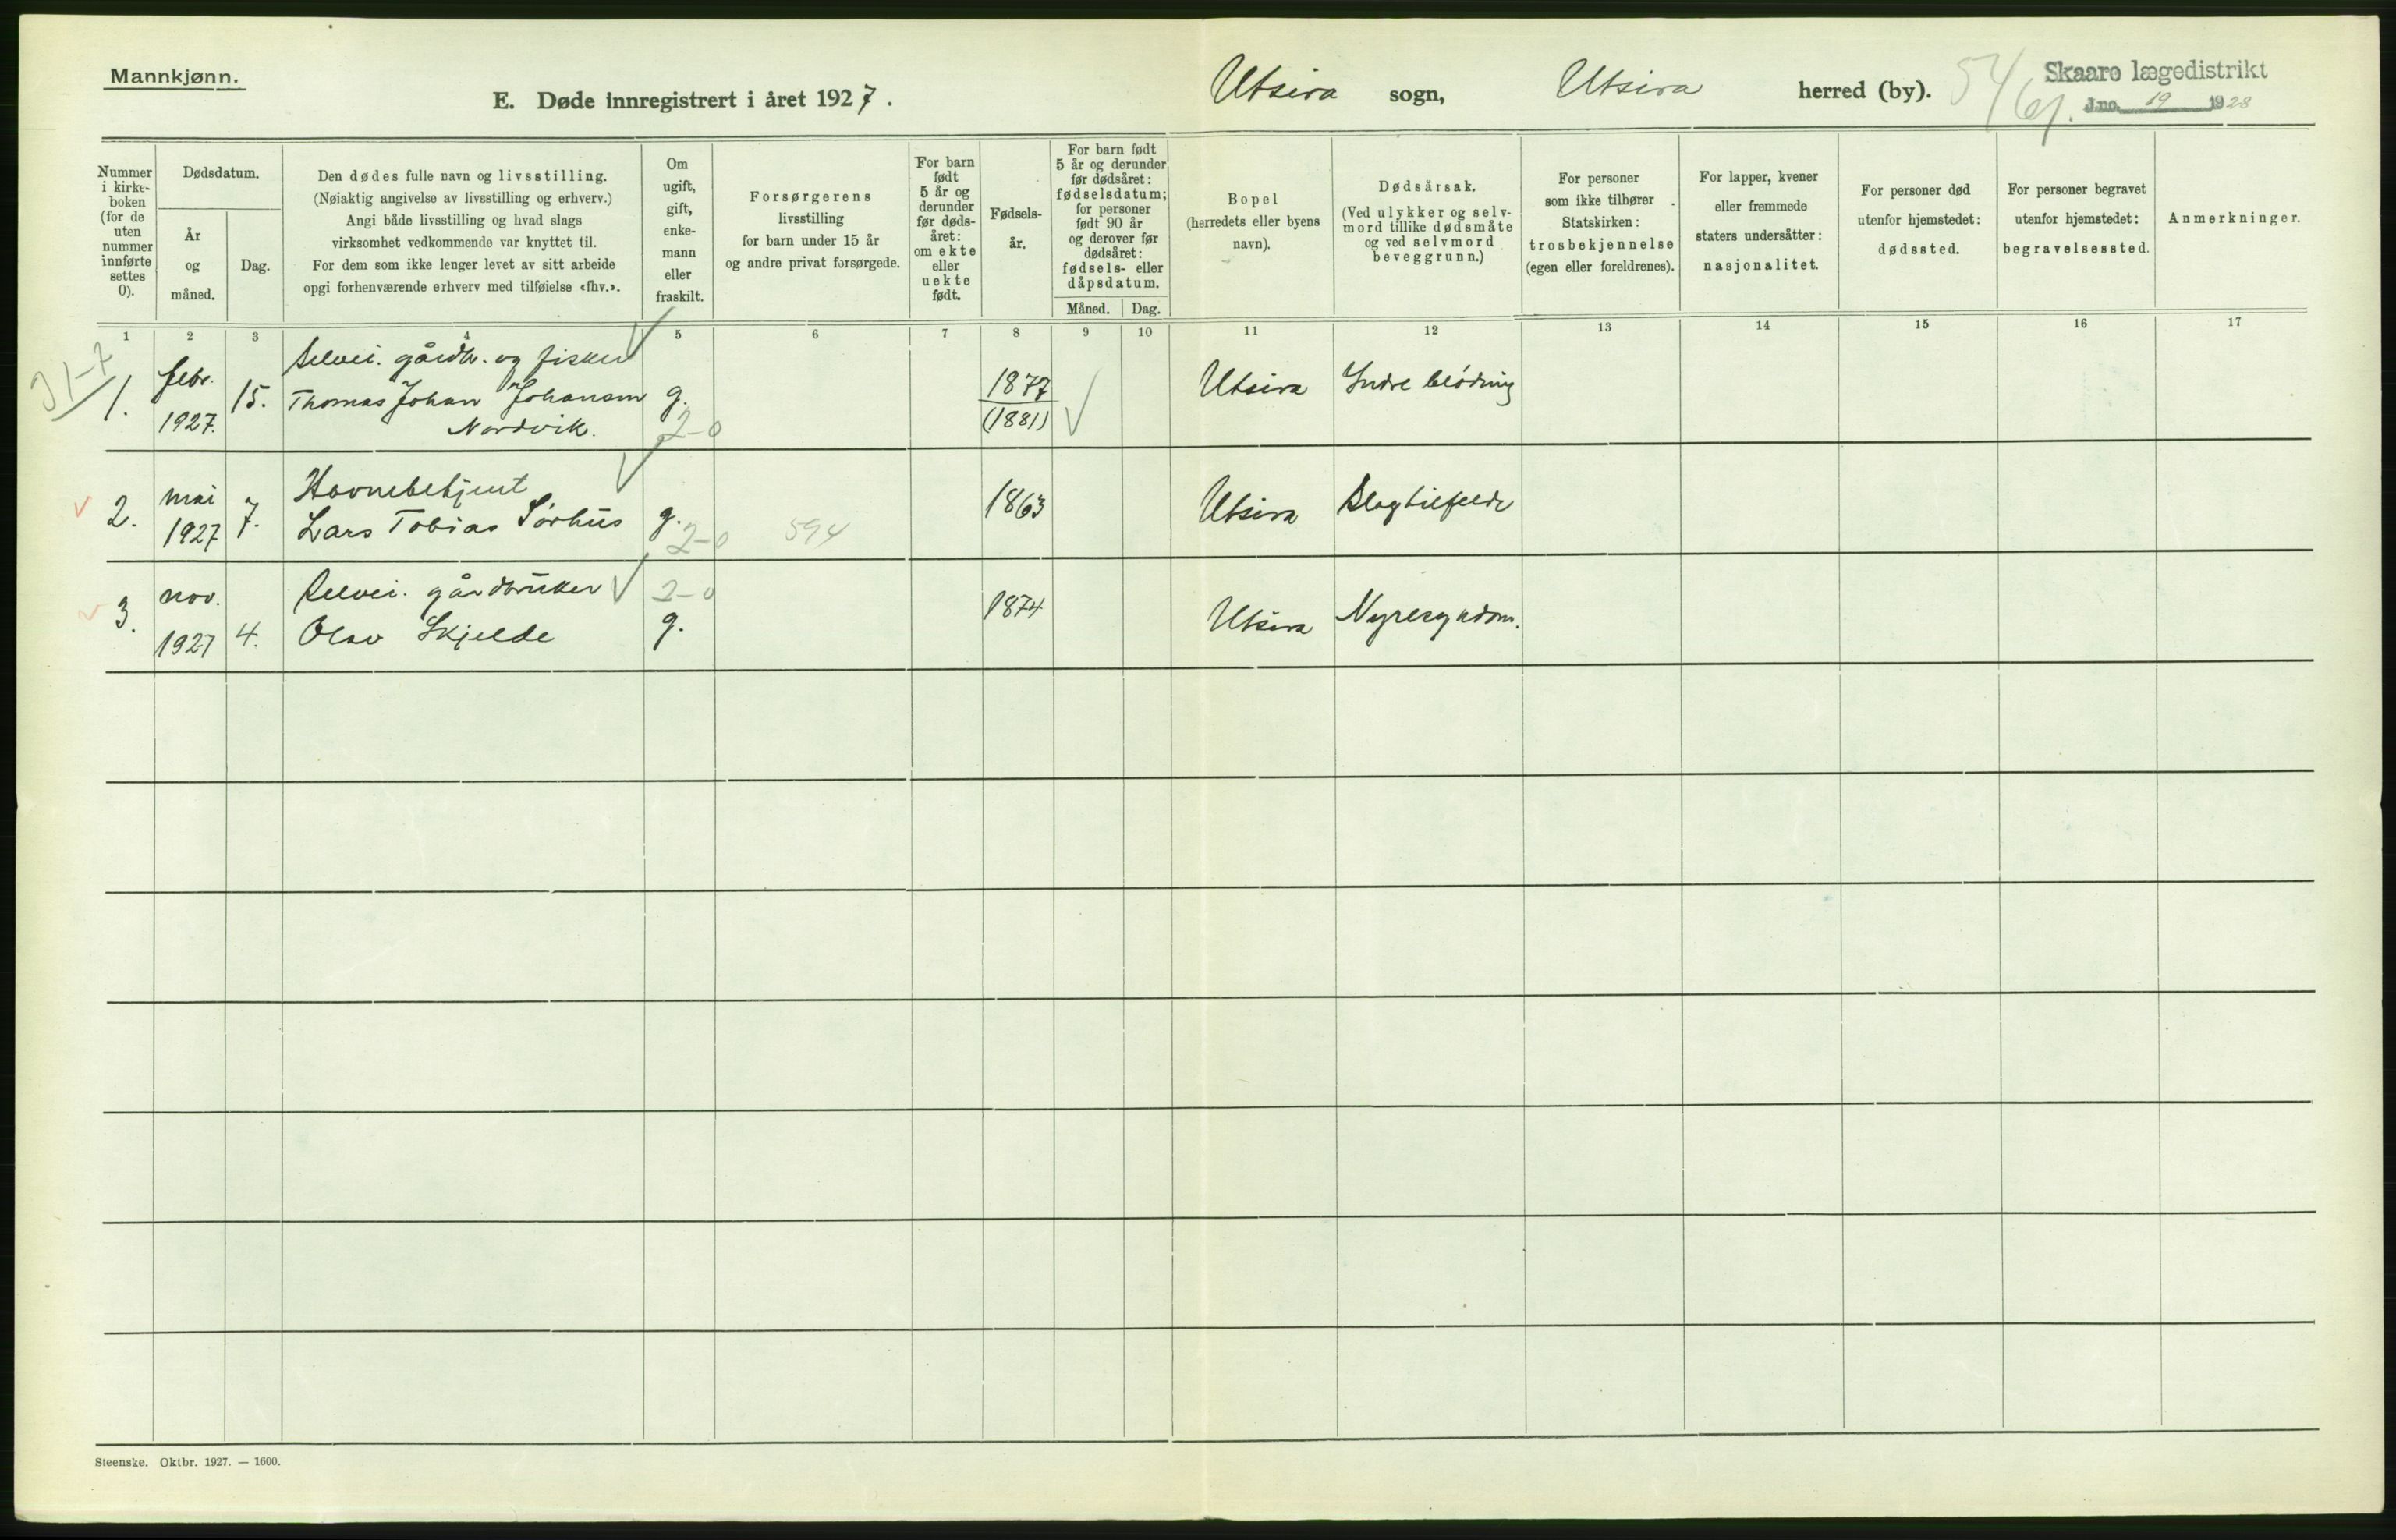 Mannkjønn.
E. Døde innregistrert i året 1927.
Utsira sogn, Utsira herred (by).
54/61.
Skaare lægedistrikt
J.no. 19 1928
Nummer
i kirke-
boken
(for de
uten
nummer
innførte
settes
0).
Dødsdatum.
År
og
måned.
Dag.
Den dødes fulle navn og livsstilling.
(Nøiaktig angivelse av livsstilling og erhverv.)
Angi både livsstilling og hvad slags
virksomhet vedkommende var knyttet til.
For dem som ikke lenger levet av sitt arbeide
opgi forhenværende erhverv med tilføielse «fhv.».
Om
ugift,
gift,
enke-
mann
eller
fraskilt.
Forsørgerens
livsstilling
for barn under 15 år
og andre privat forsørgede.
For barn
født
5 år og
derunder
før døds-
året:
om ekte
eller
uekte
født.
Fødsels-
år.
For barn født
5 år og derunder
før dødsåret:
fødselsdatum;
for personer
født 90 år
og derover før
dødsåret:
fødsels- eller
dåpsdatum.
Måned. Dag.
Bopel
(herredets eller byens
navn).
Dødsårsak.
(Ved ulykker og selv-
mord tillike dødsmåte
og ved selvmord
beveggrunn.)
For personer
som ikke tilhører
Statskirken:
trosbekjennelse
(egen eller foreldrenes).
For lapper, kvener
eller fremmede
staters undersåtter:
nasjonalitet.
For personer død
utenfor hjemstedet:
dødssted.
For personer begravet
utenfor hjemstedet:
begravelsessted.
Anmerkninger.
1 2 3 4 5 6 7 8 9 10 11 12 13 14 15 16 17
31-7
1.
febr.
1927.
15.
Selvei. gårdbr. og fisker
Thomas Johan Johansen
Nordvik.
g.
2-0
1877
(1881)
Utsira
Indre blødning
2.
mai
1927
7.
Havnebetjent
Lars Tobias Sørhus
g.
2-0
594
1863
Utsira
Slagtilfelde
3.
nov.
1927
4.
Selvei. gårdbruker
Olav Skjelde
2-0
g.
1874
Utsira
Nyresykdom.
Steenske. Oktbr. 1927. — 1600.